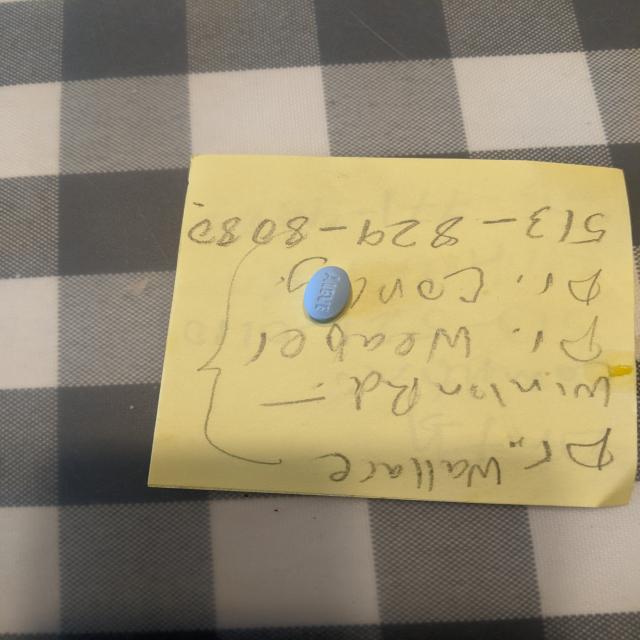 Dr. Wallace
Winton Rd -
Dr. Weaber
Dr.
513-829-8080